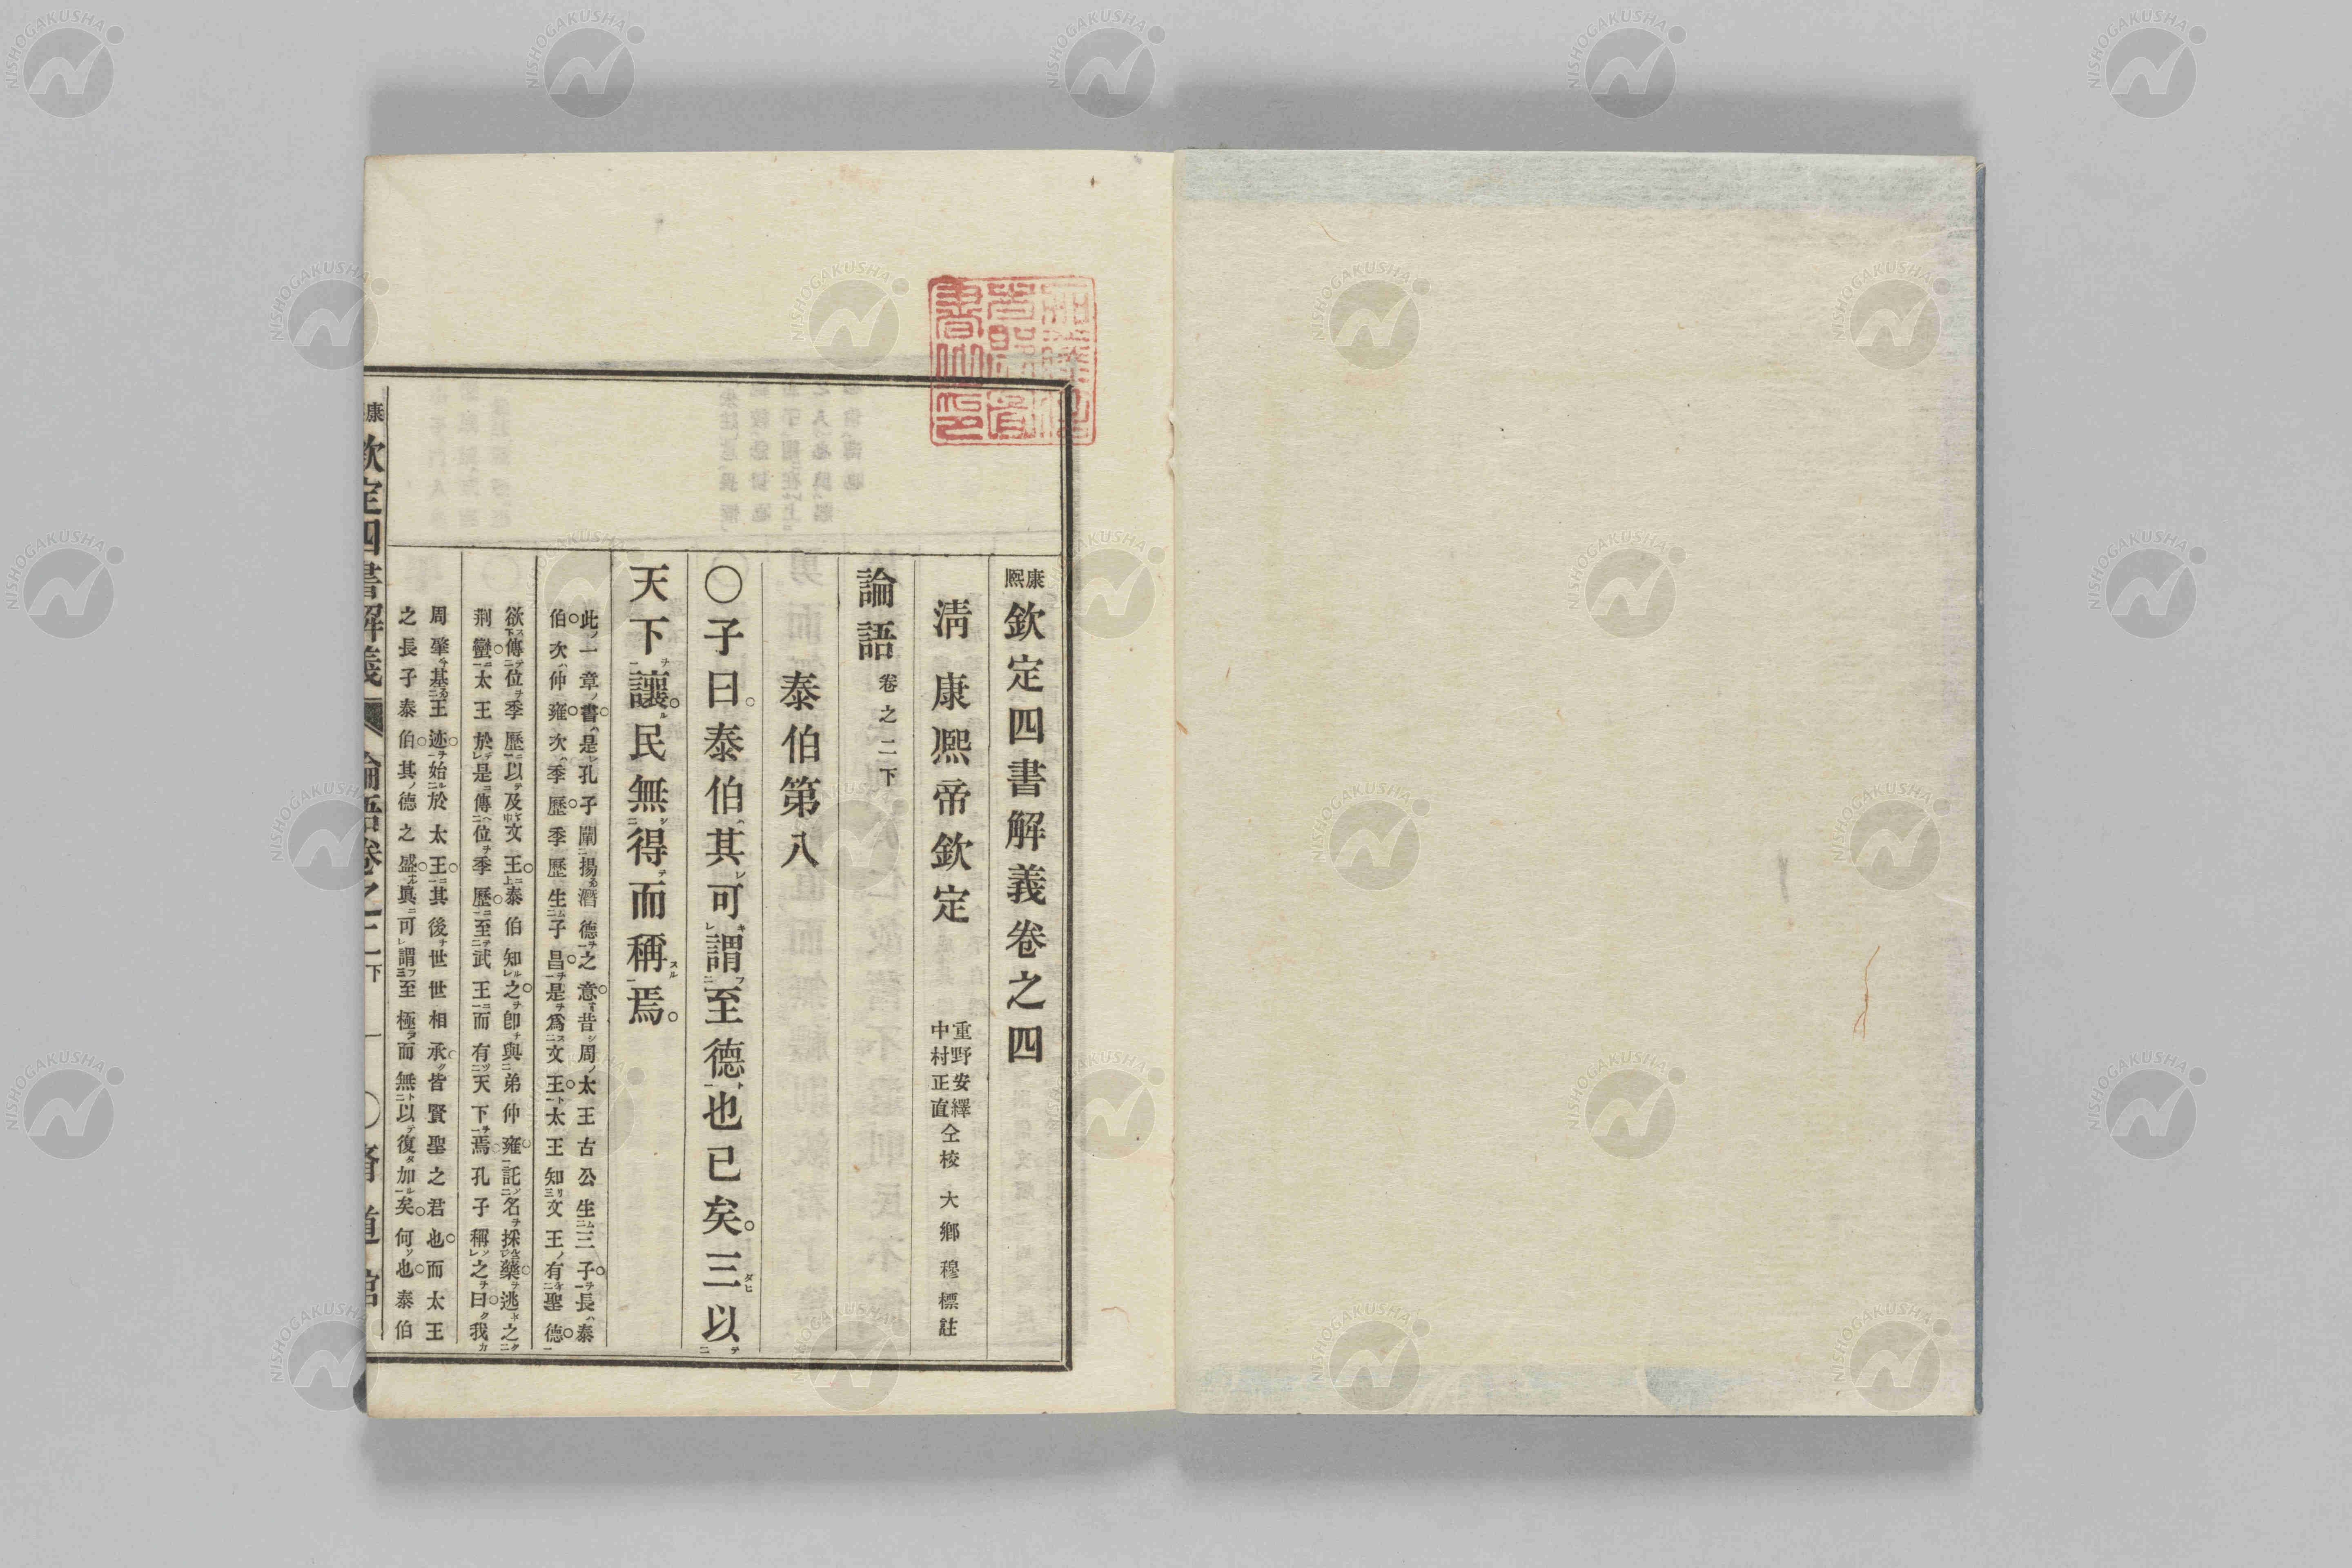 康熙欽定四書解義卷之四
清康熙帝欽定 重野安繹 中村正直 仝校 大鄉穆標註
論語卷之二下
泰伯第八
○子曰泰伯其可謂至德也已矣三以
天下讓民無得而稱焉
此一章書是孔子闡揚潛德之意昔周太王古公生三子長泰
伯次仲雍次季歷季歷生子昌是爲文王太王知文王有聖德
欲傳位季歷以及文王泰伯知之卽與弟仲雍託名採藥逃之
荊蠻太王於是傳位季歷至武王而有天下焉孔子稱之曰我
周肇基王迹始於太王其後世世相承皆賢聖之君也而太王
之長子泰伯其德之盛眞可謂至極而無以復加矣何也泰伯
康 欽定四書解義 論語卷之二下 一 ○
NISHOGAKUSHA